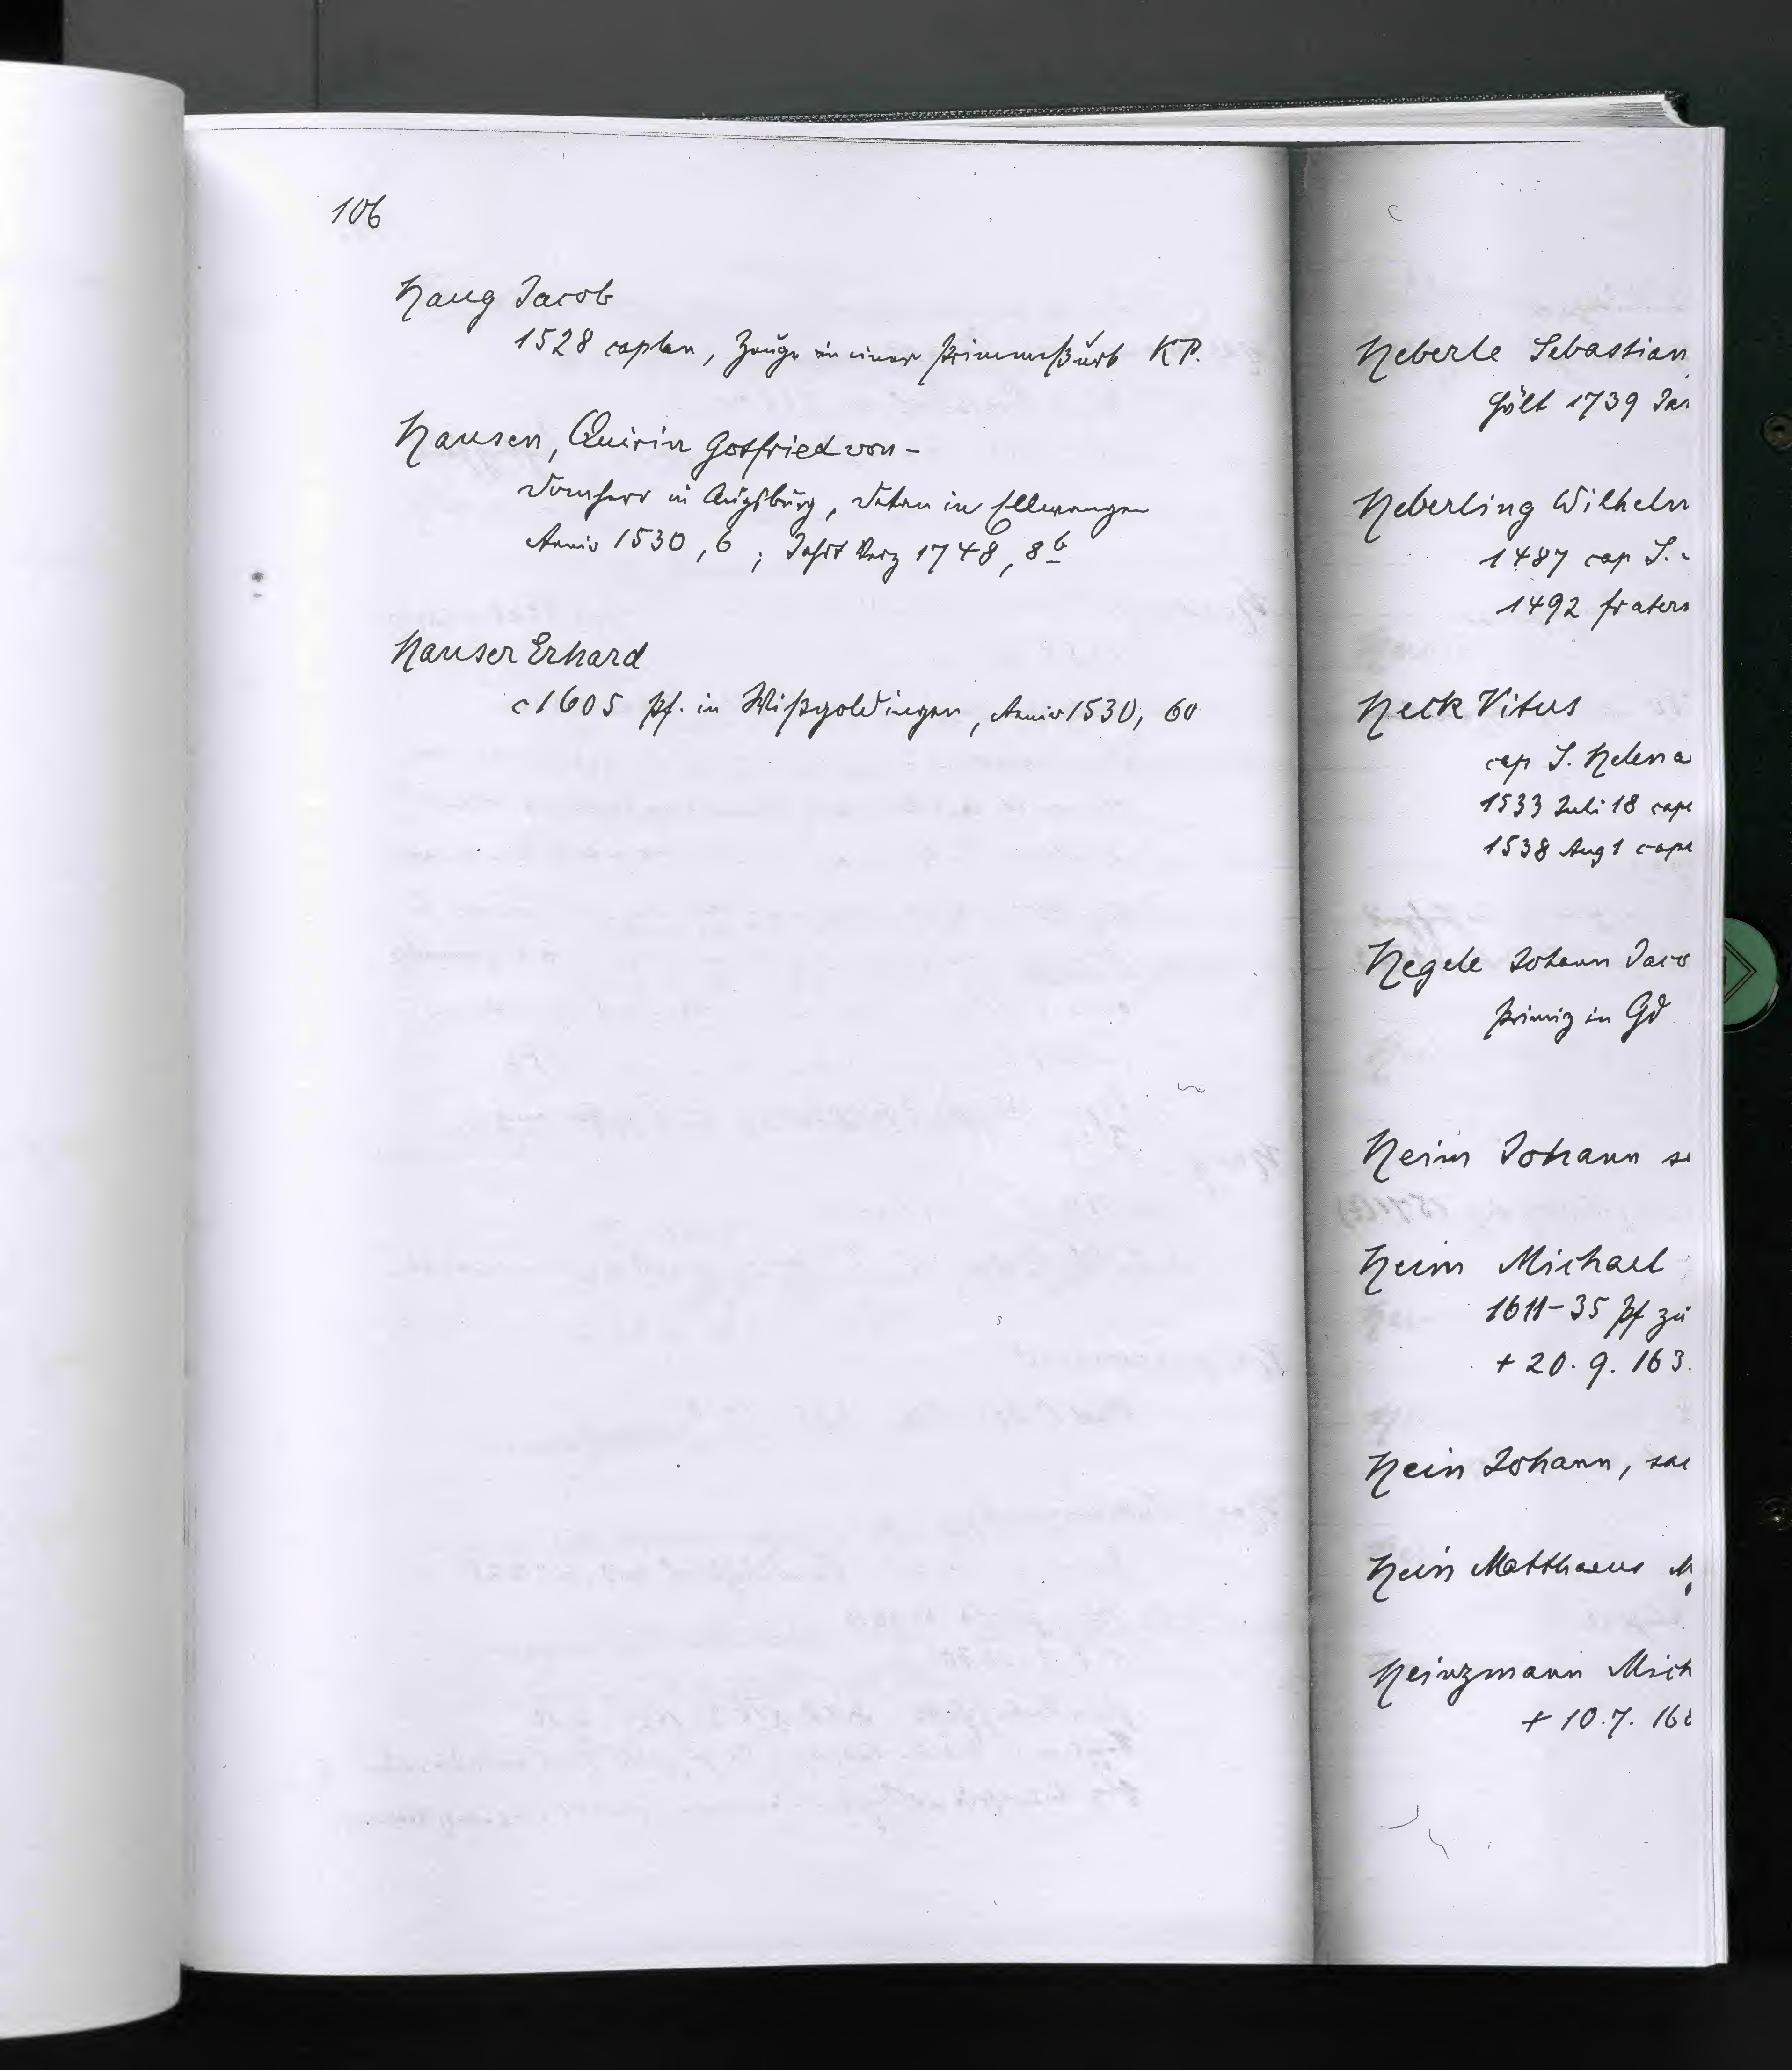 106
Haug Jacob
1528 caplan, Zeuge in einer Primmeßurk KP.
Hausen, Quirin Gotfried von -
Domherr in Augsburg, Dekan in Ellwangen
Anniv 1530, 6; Jahrt Verz 1748, 8b
Hauser Erhard
c 1605 Pf. in Wißgoldingen, Anniv 1530, 60
Heberle Sebastian
hält 1739
Heberling Wilhelm
1487 cap S.
1492 fratern
Heck Vitus
cap S. Helena
1533 Juli 18 cape
1538 Aug 1 cape
Hegele Johann Jaco
Primiz in Gd
Heim Johann
Heim Michael
1611-35 Pf zu
+ 20. 9. 163.
Hein Johann, sac
Hein Matthaeus M
Heinzmann Mich
+ 10. 7. 16